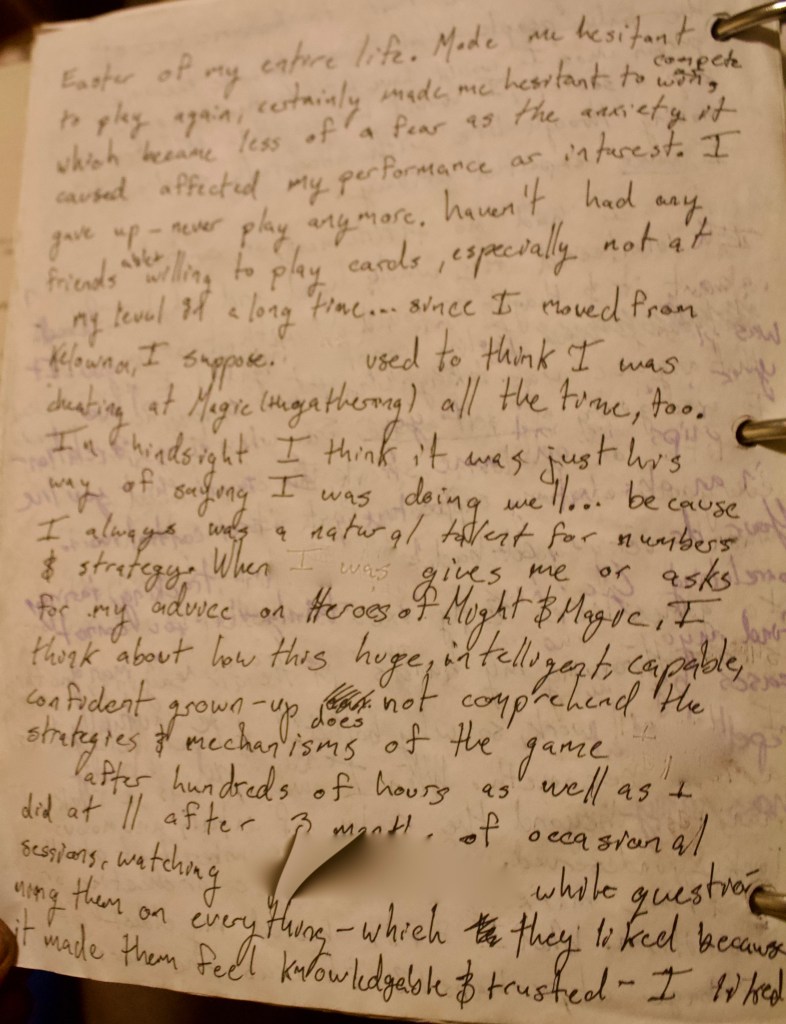 Easter of my entire life. Made me hesitant
to play again, certainly made me hesitant to compete
which became less of a fear as the anxiety it
caused affected my performance or interest. I
gave up - never play anymore. haven't had any
friends able & willing to play cards, especially not at
my level in a long time... since I moved from
Kelowna, I suppose. used to think I was
cheating at Magic (thegathering) all the time, too.
In hindsight I think it was just his
way of saying I was doing well... because
I always was a natural talent for numbers
& strategy. When I was gives me or asks
for my advice on Heroes of Might & Magic, I
think about how this huge, intelligent, capable,
confident grown-up does not comprehend the
strategies & mechanisms of the game
after hundreds of hours as well as I
did at 11 after 3 month of occasional
sessions, watching while questio
ning them on everything - which they liked because
it made them feel knowledgeable & trusted - I liked